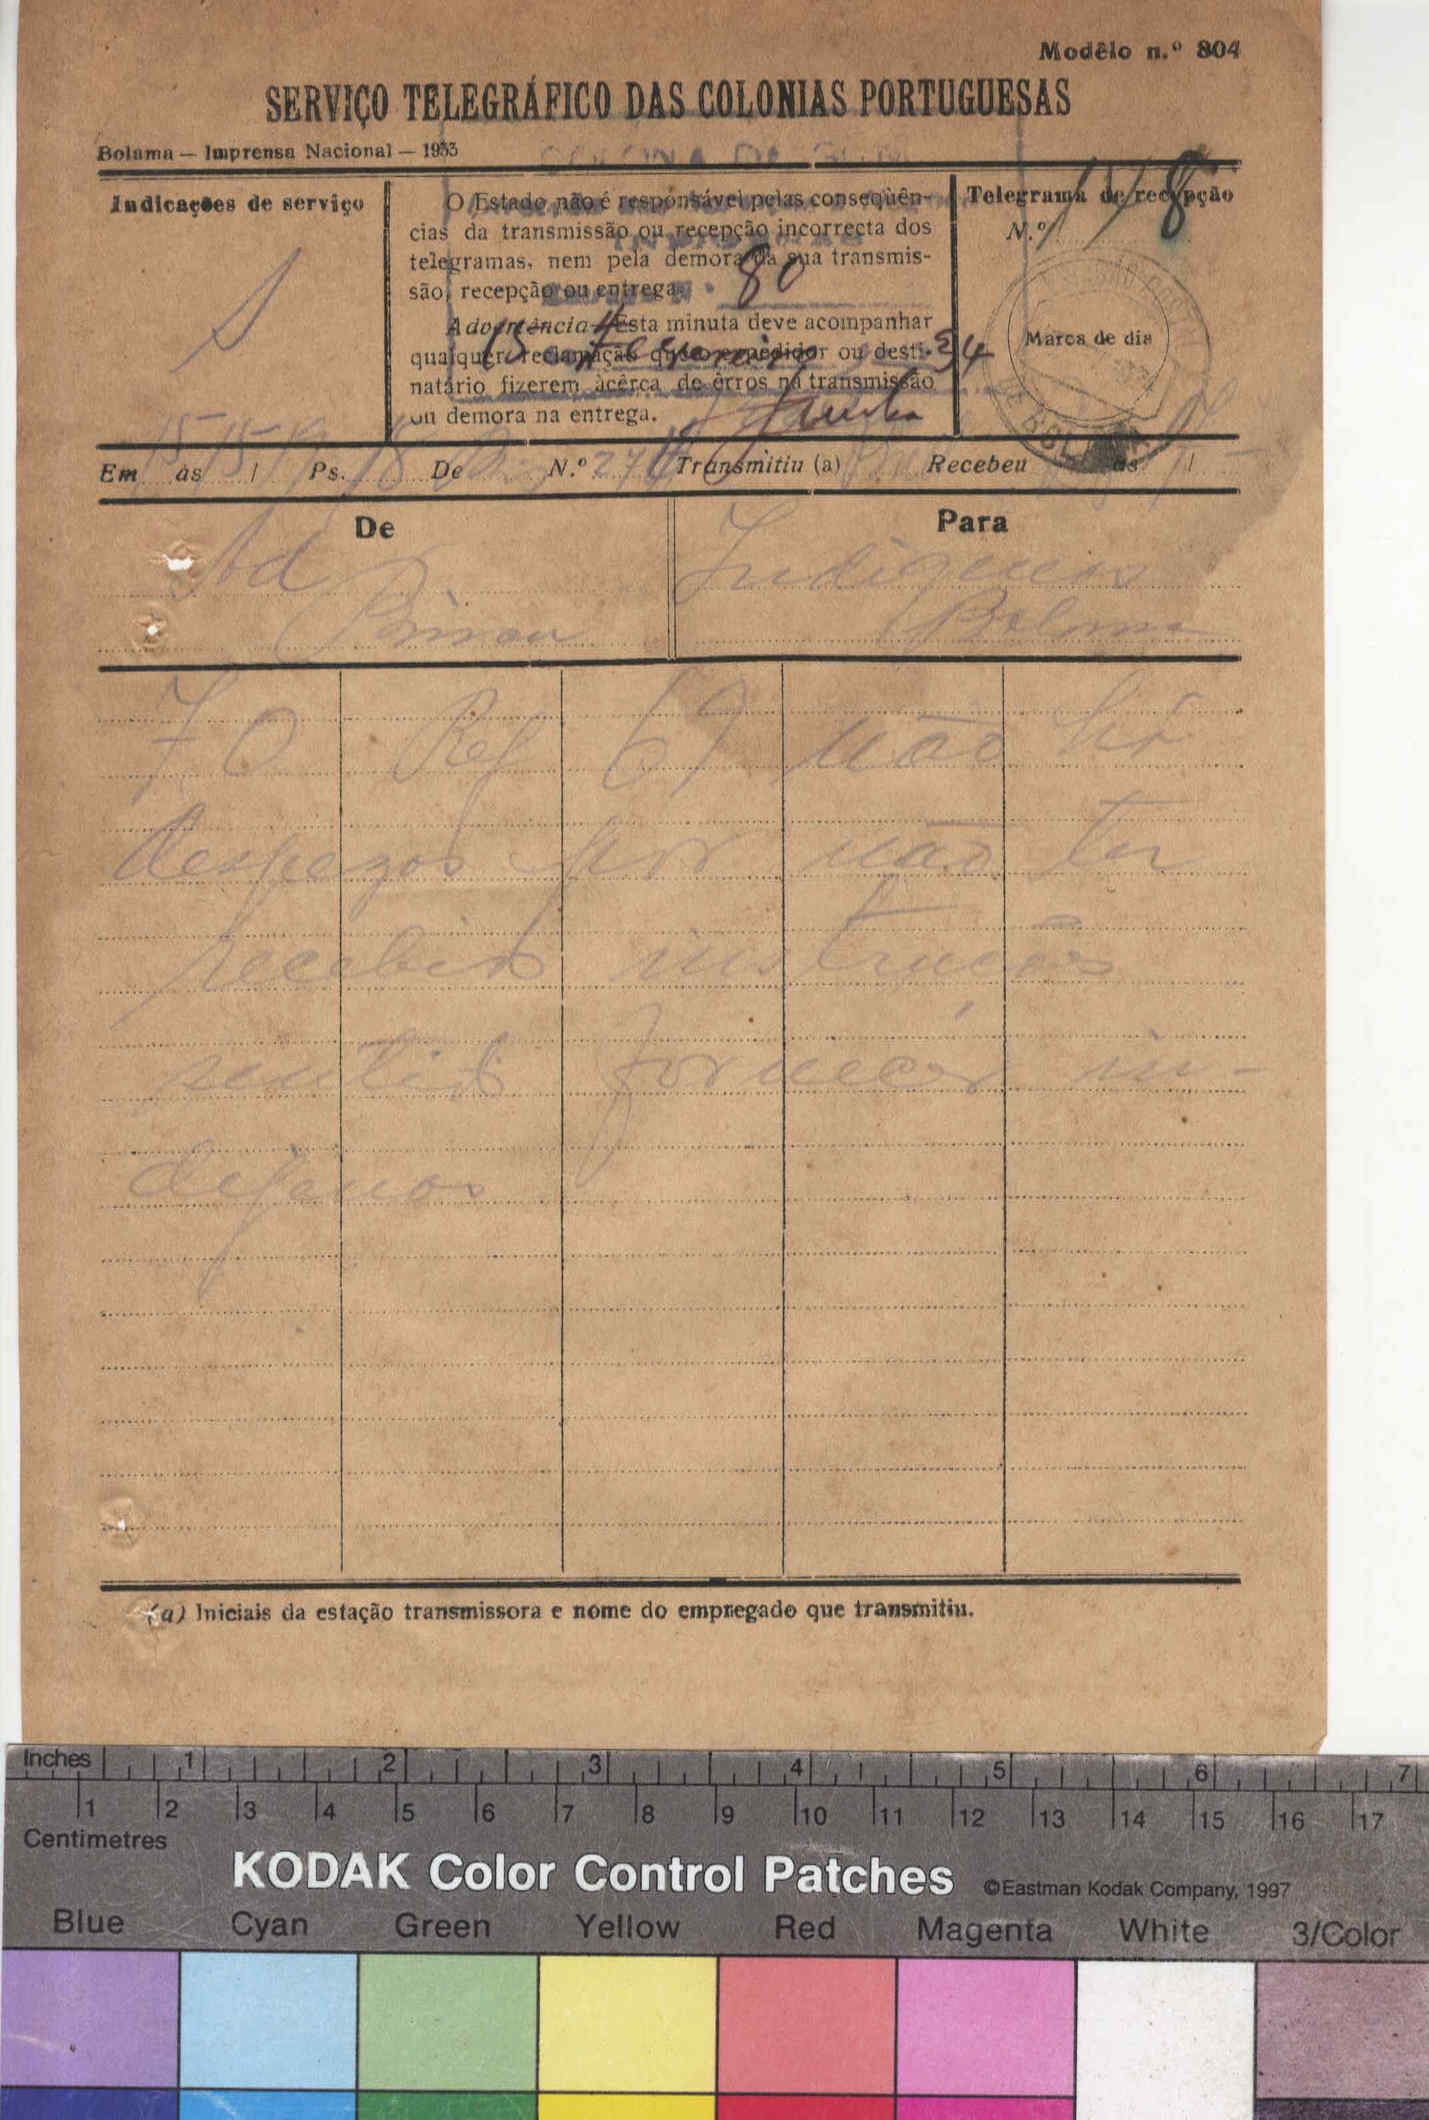 Modêlo n.º 804
SERVIÇO TELEGRÁFICO DAS COLONIAS PORTUGUESAS
Bolama — Imprensa Nacional — 1933
Indicações de serviço
S
O Estado não é responsável pelas conseqüên-
cias da transmissão ou recepção incorrecta dos
telegramas, nem pela demora da sua transmis-
são, recepção ou entrega.
80
Advertência—Esta minuta deve acompanhar
qualquer reclamação que o expedidor ou desti-
natário fizerem àcêrca de êrros na transmissão
ou demora na entrega.
15 Fevereiro 34
Telegrama de recepção
N.º 178
Marca de dia
Em às / Ps. 18 De N.º Transmitiu (a) Recebeu às /
De
Para
Ad
Bissau
Indigenas
Bolama
70 Ref 69 não há
despezas por não ter
recebido instruções
sentido fornecer in-
digenas
(a) Iniciais da estação transmissora e nome do empregado que transmitiu.
Inches 1 2 3 4 5 6 7
1 2 3 4 5 6 7 8 9 10 11 12 13 14 15 16 17
Centimetres
KODAK Color Control Patches ©Eastman Kodak Company, 1997
Blue Cyan Green Yellow Red Magenta White 3/Color